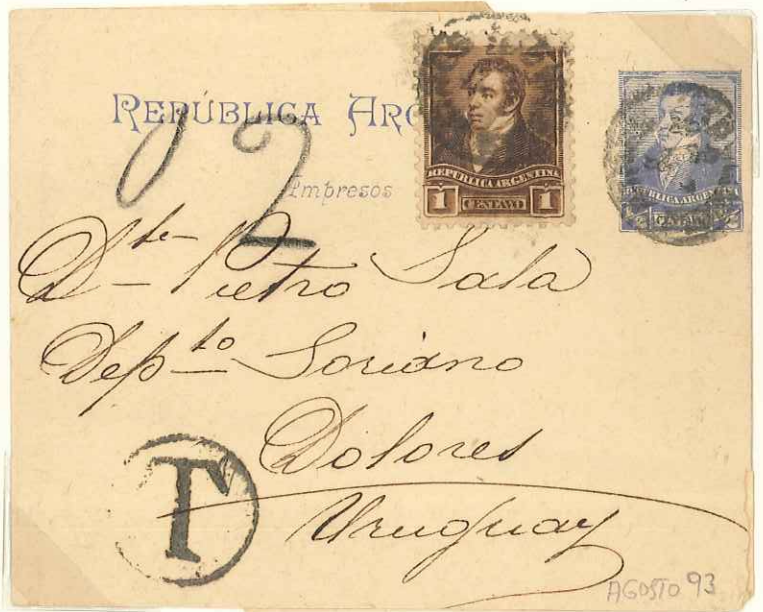 REPÚBLICA ARG
Impresos
02
REPUBLICA ARGENTINA
1 CENTAVO 1
REPUBLICA ARGENTINA
½ CENTAVO ½
Dte Pietro Sala
Depto Soriano
Dolores
Uruguay
T
AGOSTO 93